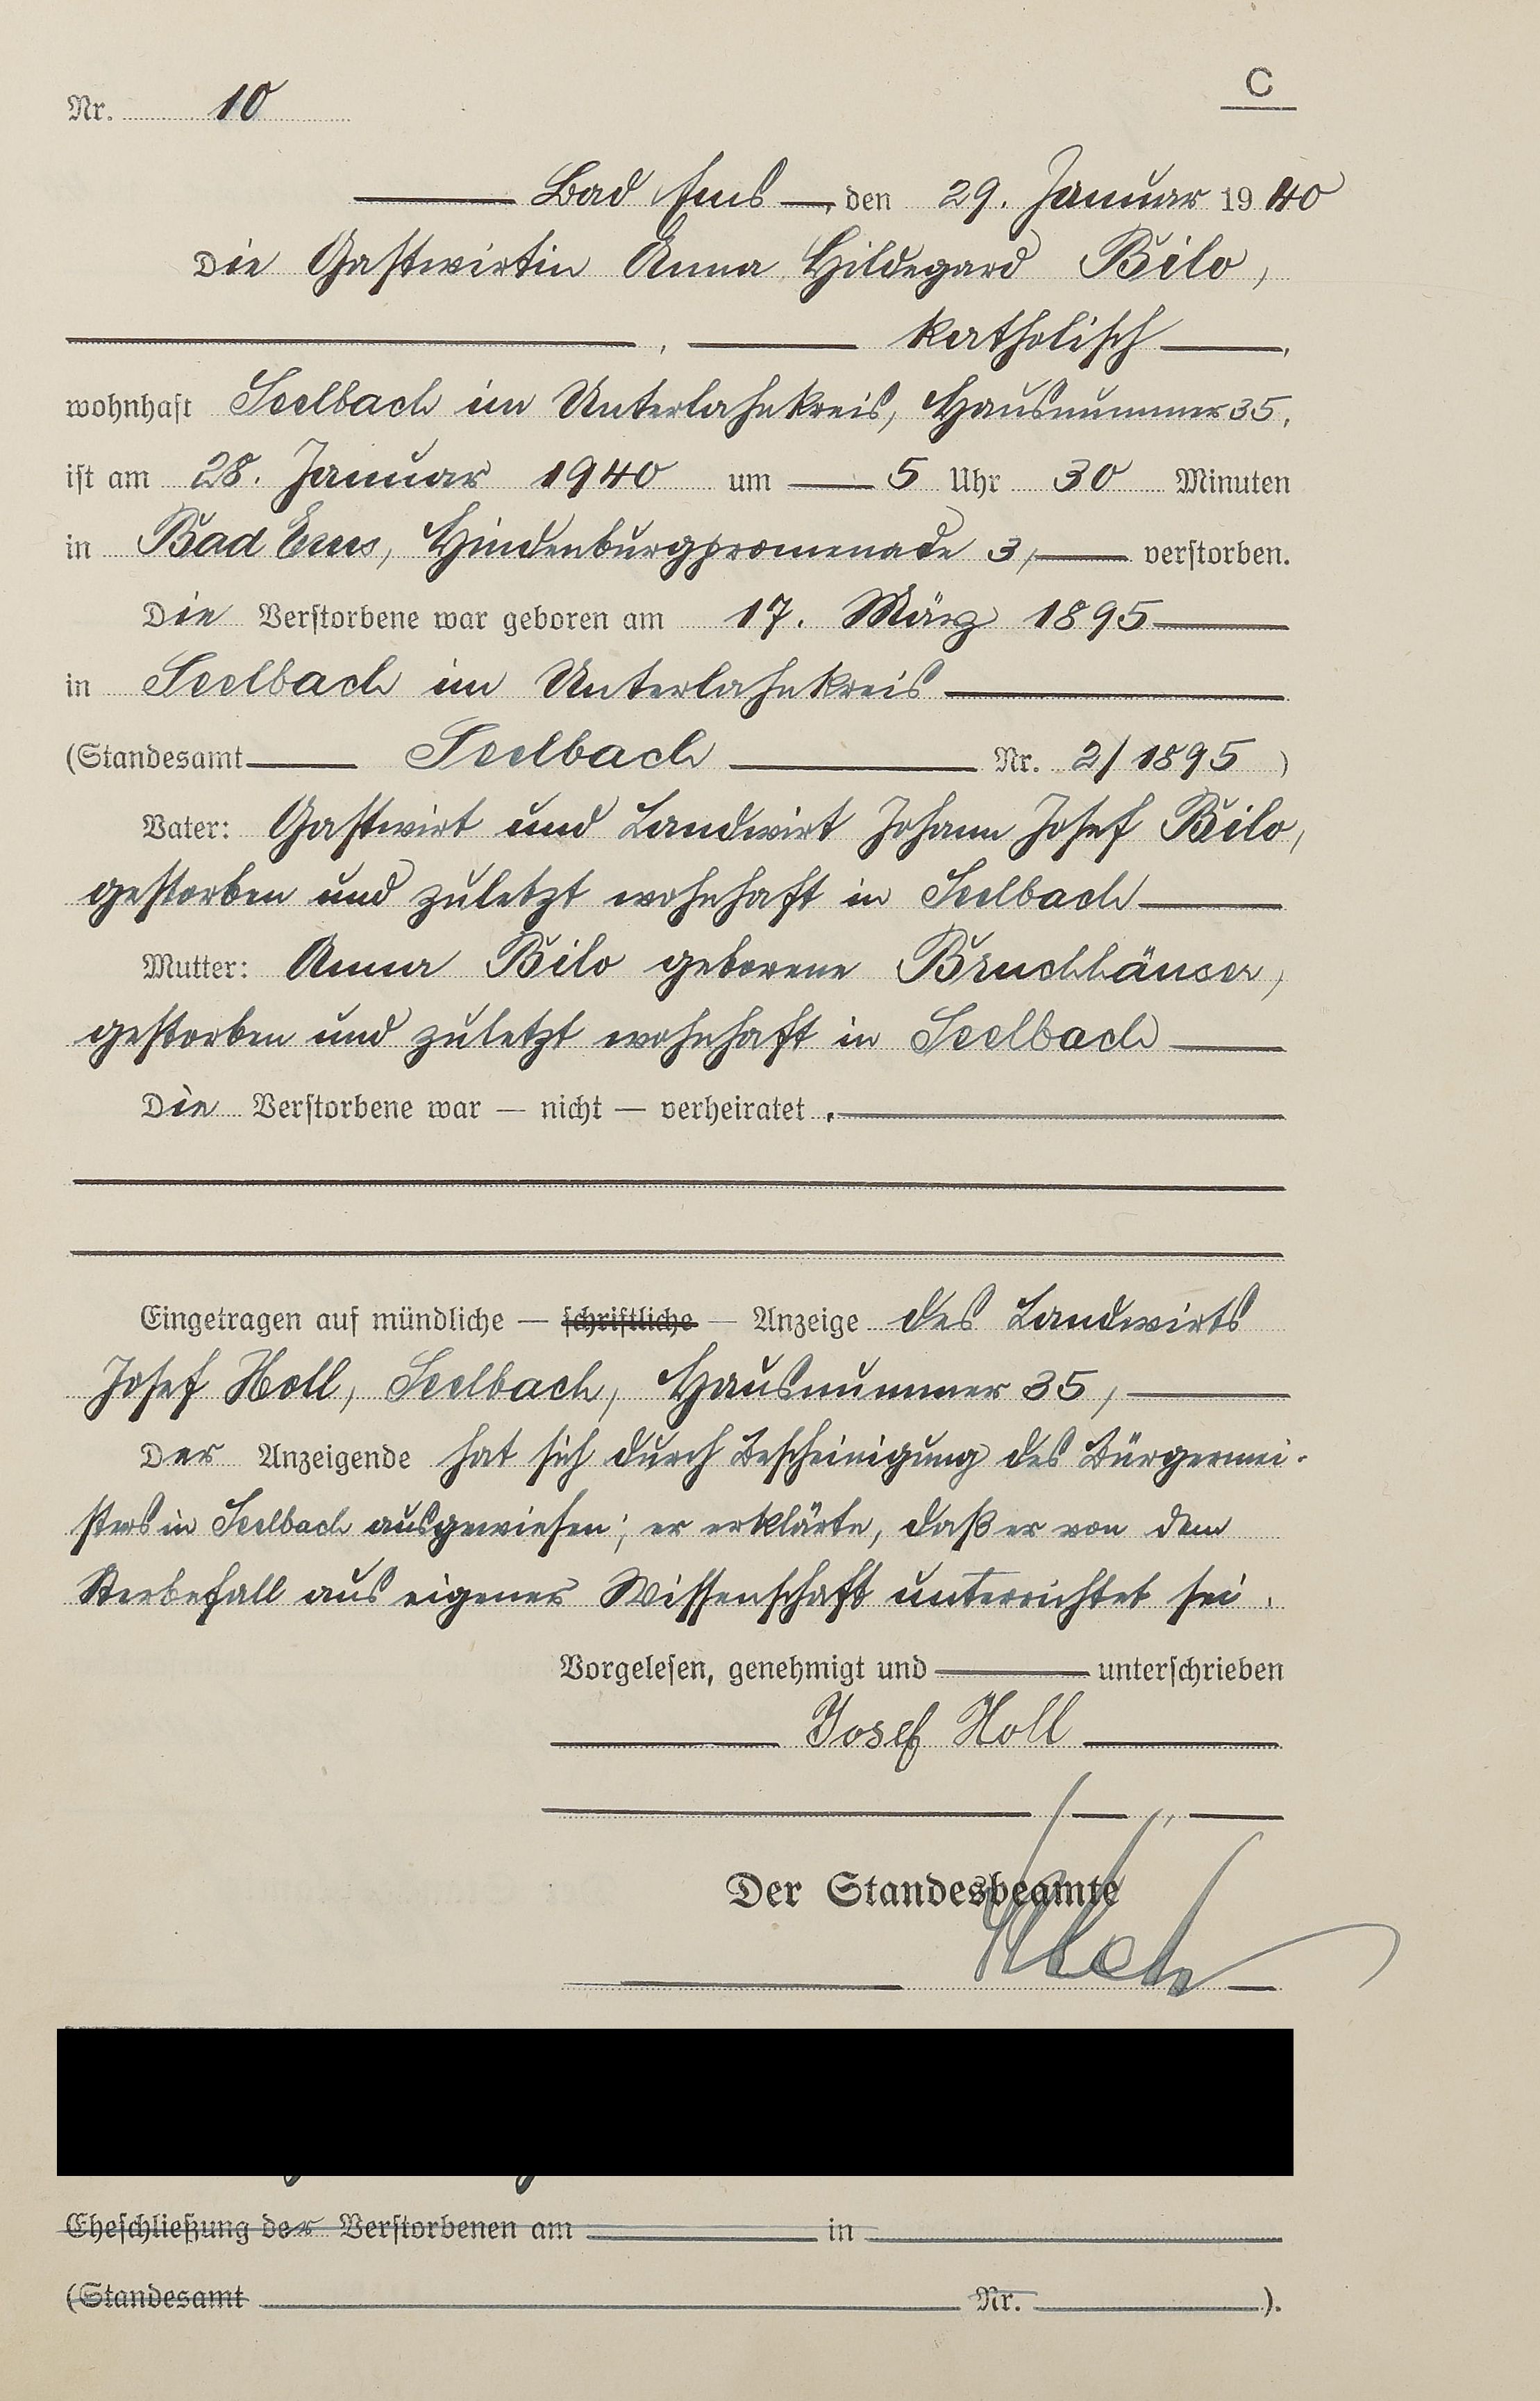 C
Nr. 10
Bad Ems, den 29. Januar 1940
Die Gastwirtin Anna Hildegard Bilo,
, katholisch,
wohnhaft Seelbach im Unterlahnkreis, Hausnummer 35,
ist am 28. Januar 1940 um 5 Uhr 30 Minuten
in Bad Ems, Hindenburgpromenade 3, verstorben.
Die Verstorbene war geboren am 17. März 1895
in Seelbach im Unterlahnkreis
(Standesamt Seelbach Nr. 2/1895)
Vater: Gastwirt und Landwirt Johann Josef Bilo,
gestorben und zuletzt wohnhaft in Seelbach
Mutter: Anna Bilo geborene Bruchhäuser,
gestorben und zuletzt wohnhaft in Seelbach
Die Verstorbene war — nicht — verheiratet.
Eingetragen auf mündliche — schriftliche — Anzeige des Landwirts
Josef Noll, Seelbach, Hausnummer 35,
Der Anzeigende hat sich durch Bescheinigung des Bürgermei-
sters in Seelbach ausgewiesen; er erklärte, daß er von dem
Sterbefall aus eigener Wissenschaft unterrichtet sei.
Vorgelesen, genehmigt und unterschrieben
Josef Noll
Der Standesbeamte
Eheschließung der Verstorbenen am in
(Standesamt Nr. ).